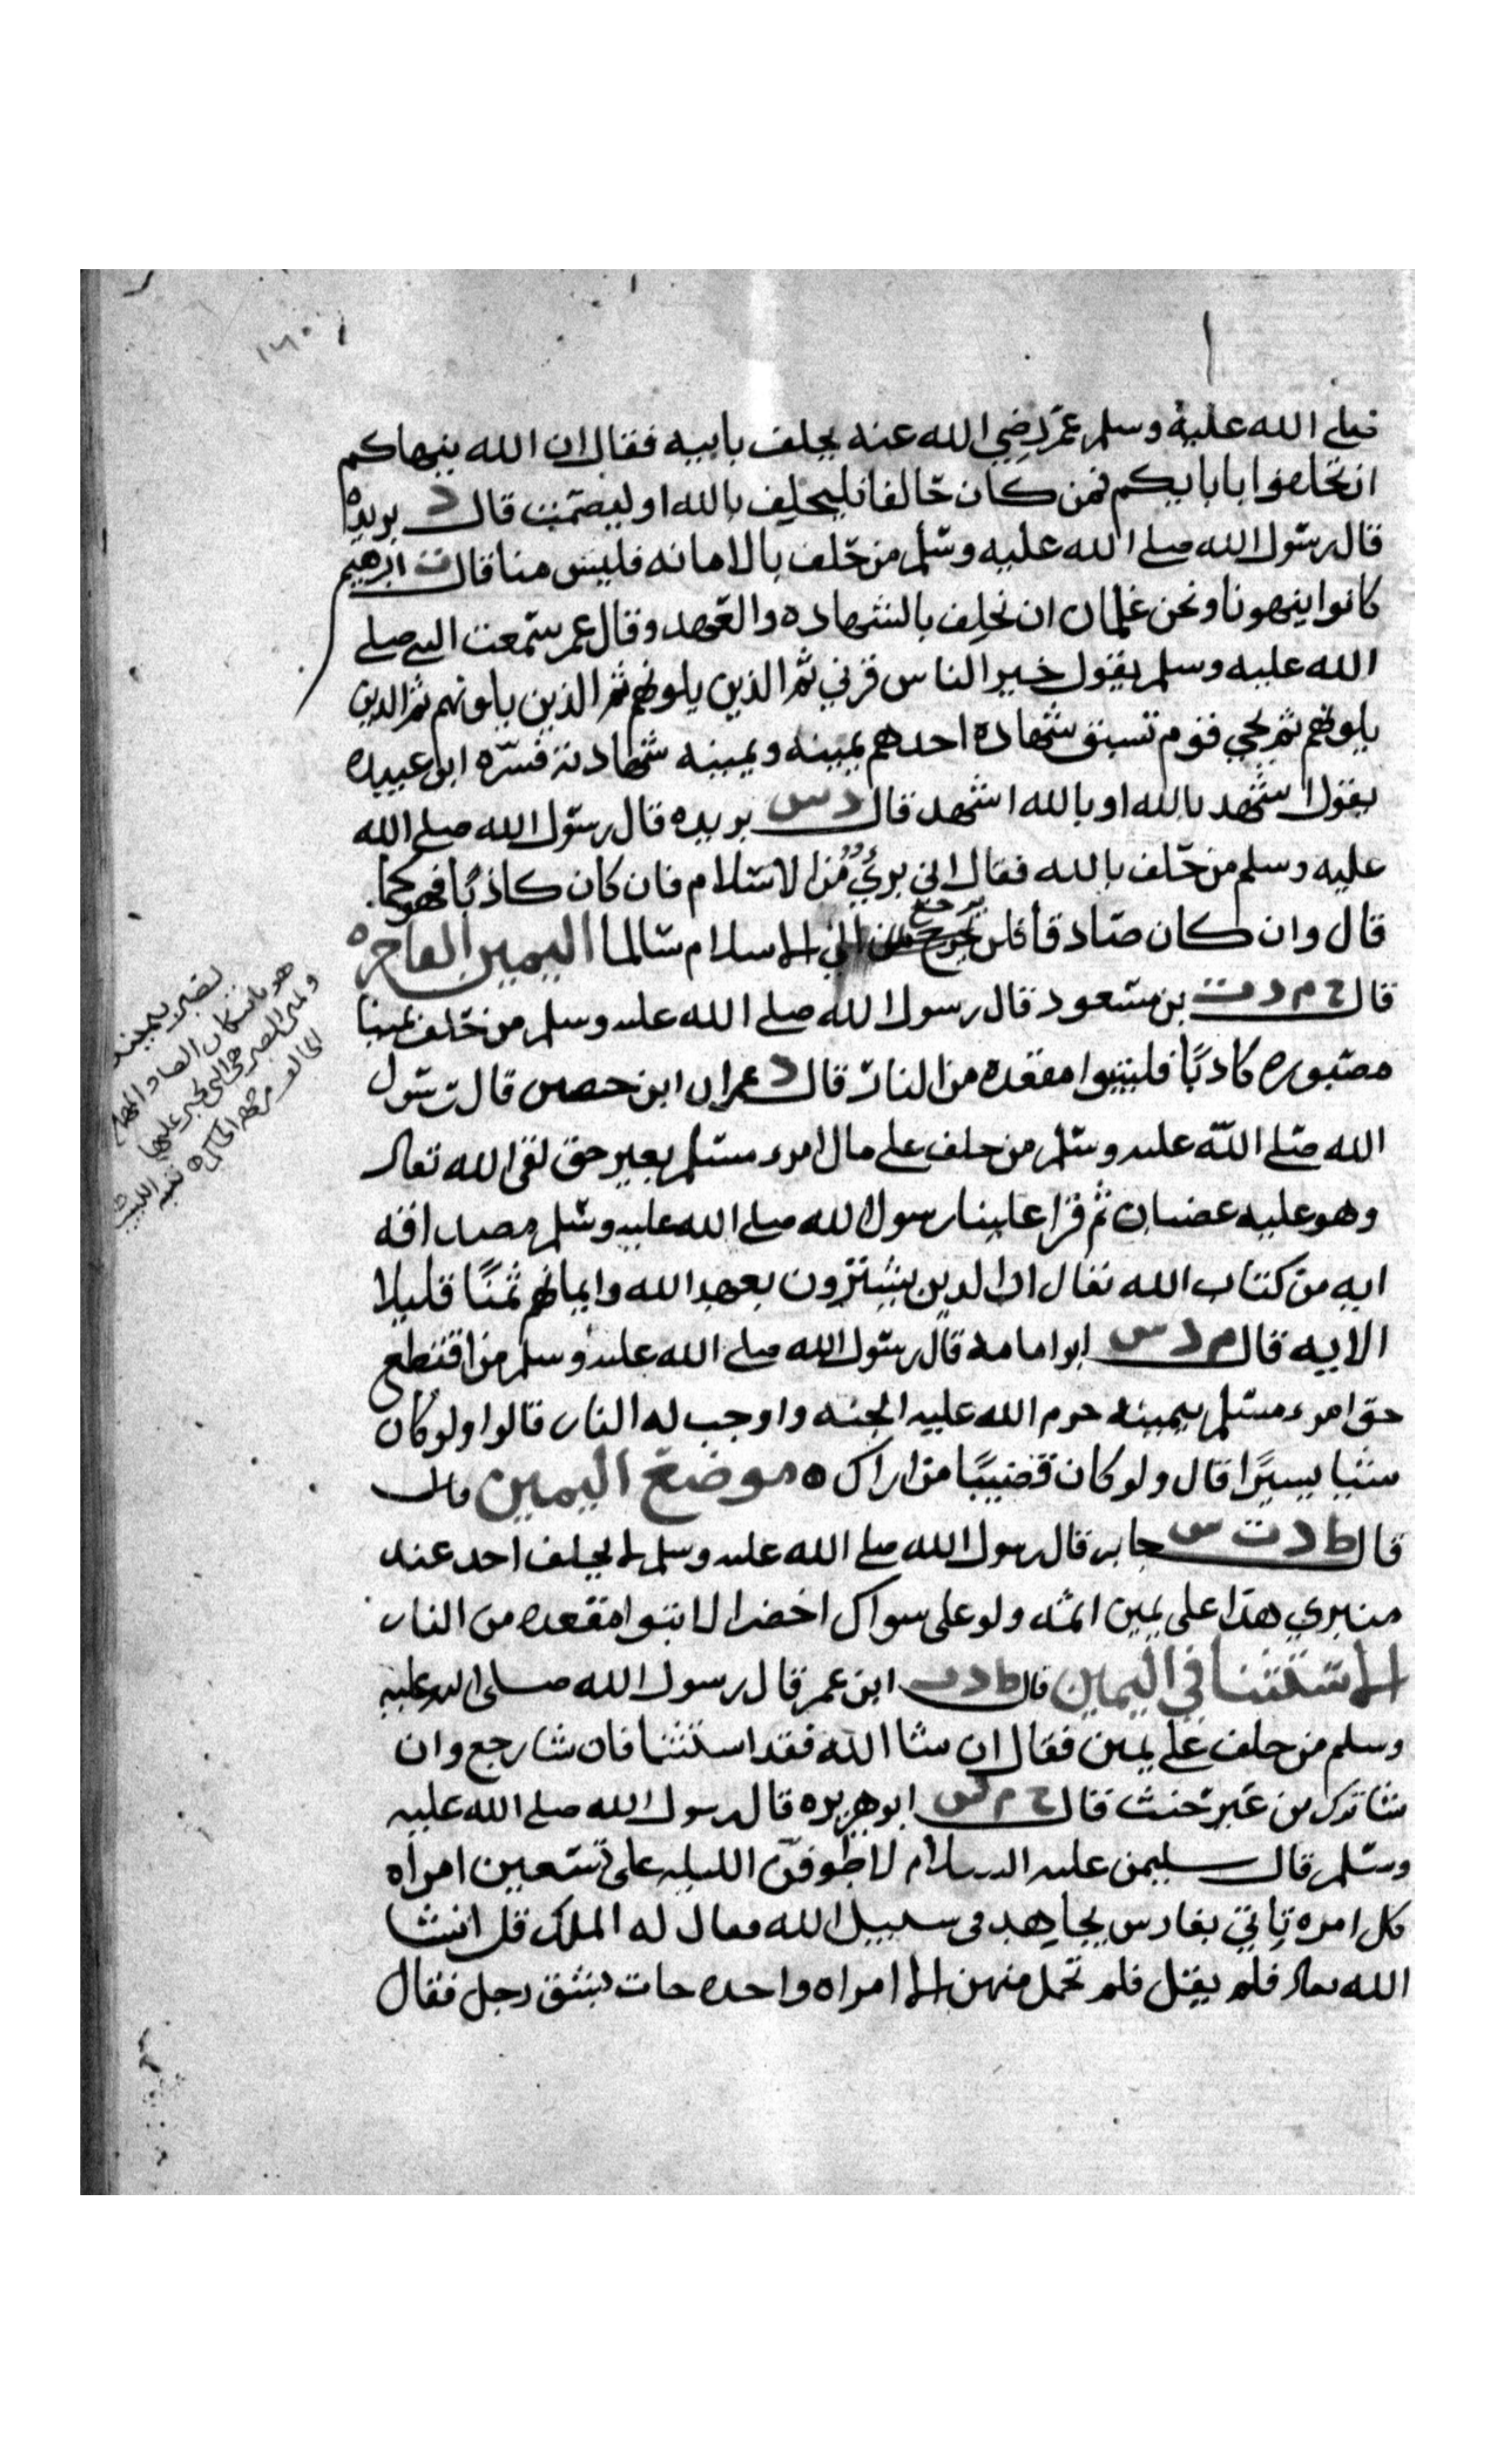 صلى الله عليه وسلم عمر رضي الله عنه يحلف بابيه فقال ان الله ينهاكم
ان تحلفوا بابايكم فمن كان حالفا فليحلف بالله او ليصمت قال د بريده
قال رسول الله صلى الله عليه وسلم من حلف بالامانه فليس منا قال ابرهيم
كانوا ينهونا ونحن غلمان ان نحلف بالشهاده والعهد وقال عمر سمعت النبي صلى
الله عليه وسلم يقول خير الناس قرني ثم الذين يلونهم ثم الذين يلونهم ثم الذين
يلونهم ثم يجي قوم تسبق شهاده احدهم يمينه ويمينه شهادته فسره ابو عبيده
يقول اشهد بالله او بالله اشهد قال د س بريده قال رسول الله صلى الله
عليه وسلم من حلف بالله فقال اني بريٌ من الاسلام فان كان كاذبًا فهو كما
قال وان كان صادقا فلن يرجع الى الاسلام سالما اليمين الفاجره
قال خ م د ت بن مسعود قال رسول الله صلى الله عليه وسلم من حلف يمينا
مصبوره كاذبًا فليتبوا مقعده من النار قال د عمران ابن حصين قال رسول
الله صلى الله عليه وسلم من حلف على مال امرء مسلم بغير حق لقى الله تعالى
وهو عليه غضبان ثم قرا علينا رسول الله صلى الله عليه وسلم مصداقه
ايه من كتاب الله تعالى ان الذين يشترون بعهد الله وايمانهم ثمنًا قليلا
الايه قال م د س ابو امامه قال رسول الله صلى الله عليه وسلم من اقتطع
حق امرء مسلم بيمينه حرم الله عليه الجنه واوجب له النار قالوا ولو كان
شيا يسيرًا قال ولو كان قضيبًا من اراك ه موضع اليمين قال
قال ط د ت س جابر قال رسول الله صلى الله عليه وسلم لا يحلف احد عند
منبري هذا على يمين اثمه ولو على سواك اخضر الا تبوا مقعده من النار
الاستثنا في اليمين قال ط د ت ابن عمر قال رسول الله صلى الله عليه
وسلم من حلف على يمين فقال ان شا الله فقد استثنا فان شا رجع وان
شا ترك من غير حنث قال خ م س ابو هريره قال رسول الله صلى الله عليه
وسلم قال سليمن عليه السلام لاطوفن الليله على تسعين امراه
كل امره تاتي بفارس يجاهد في سبيل الله فقال له الملك قل انشا
الله تعالى فلم يقل فلم تحمل منهن الا امراه واحده جات بشق رجل فقال
هو باسكان الصاد المهمله